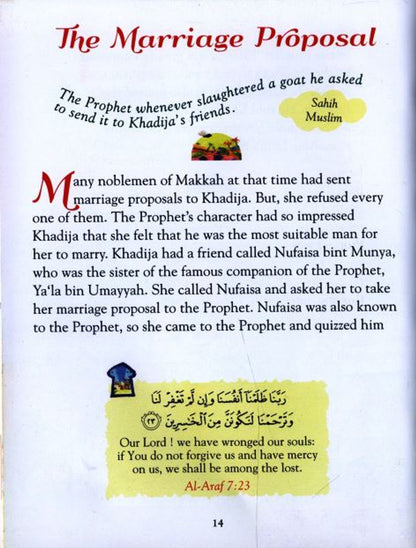 The Marriage Proposal
The Prophet whenever slaughtered a goat he asked
to send it to Khadija's friends.
Sahih
Muslim
Many noblemen of Makkah at that time had sent
marriage proposals to Khadija. But, she refused every
one of them. The Prophet's character had so impressed
Khadija that she felt that he was the most suitable man for
her to marry. Khadija had a friend called Nufaisa bint Munya,
who was the sister of the famous companion of the Prophet,
Ya‘la bin Umayyah. She called Nufaisa and asked her to take
her marriage proposal to the Prophet. Nufaisa was also known
to the Prophet, so she came to the Prophet and quizzed him
رَبَّنَا ظَلَمْنَآ أَنفُسَنَا وَإِن لَّمْ تَغْفِرْ لَنَا
وَتَرْحَمْنَا لَنَكُونَنَّ مِنَ ٱلْخَٰسِرِينَ ﴿٢٣﴾
Our Lord ! we have wronged our souls:
if You do not forgive us and have mercy
on us, we shall be among the lost.
Al-Araf 7:23
14